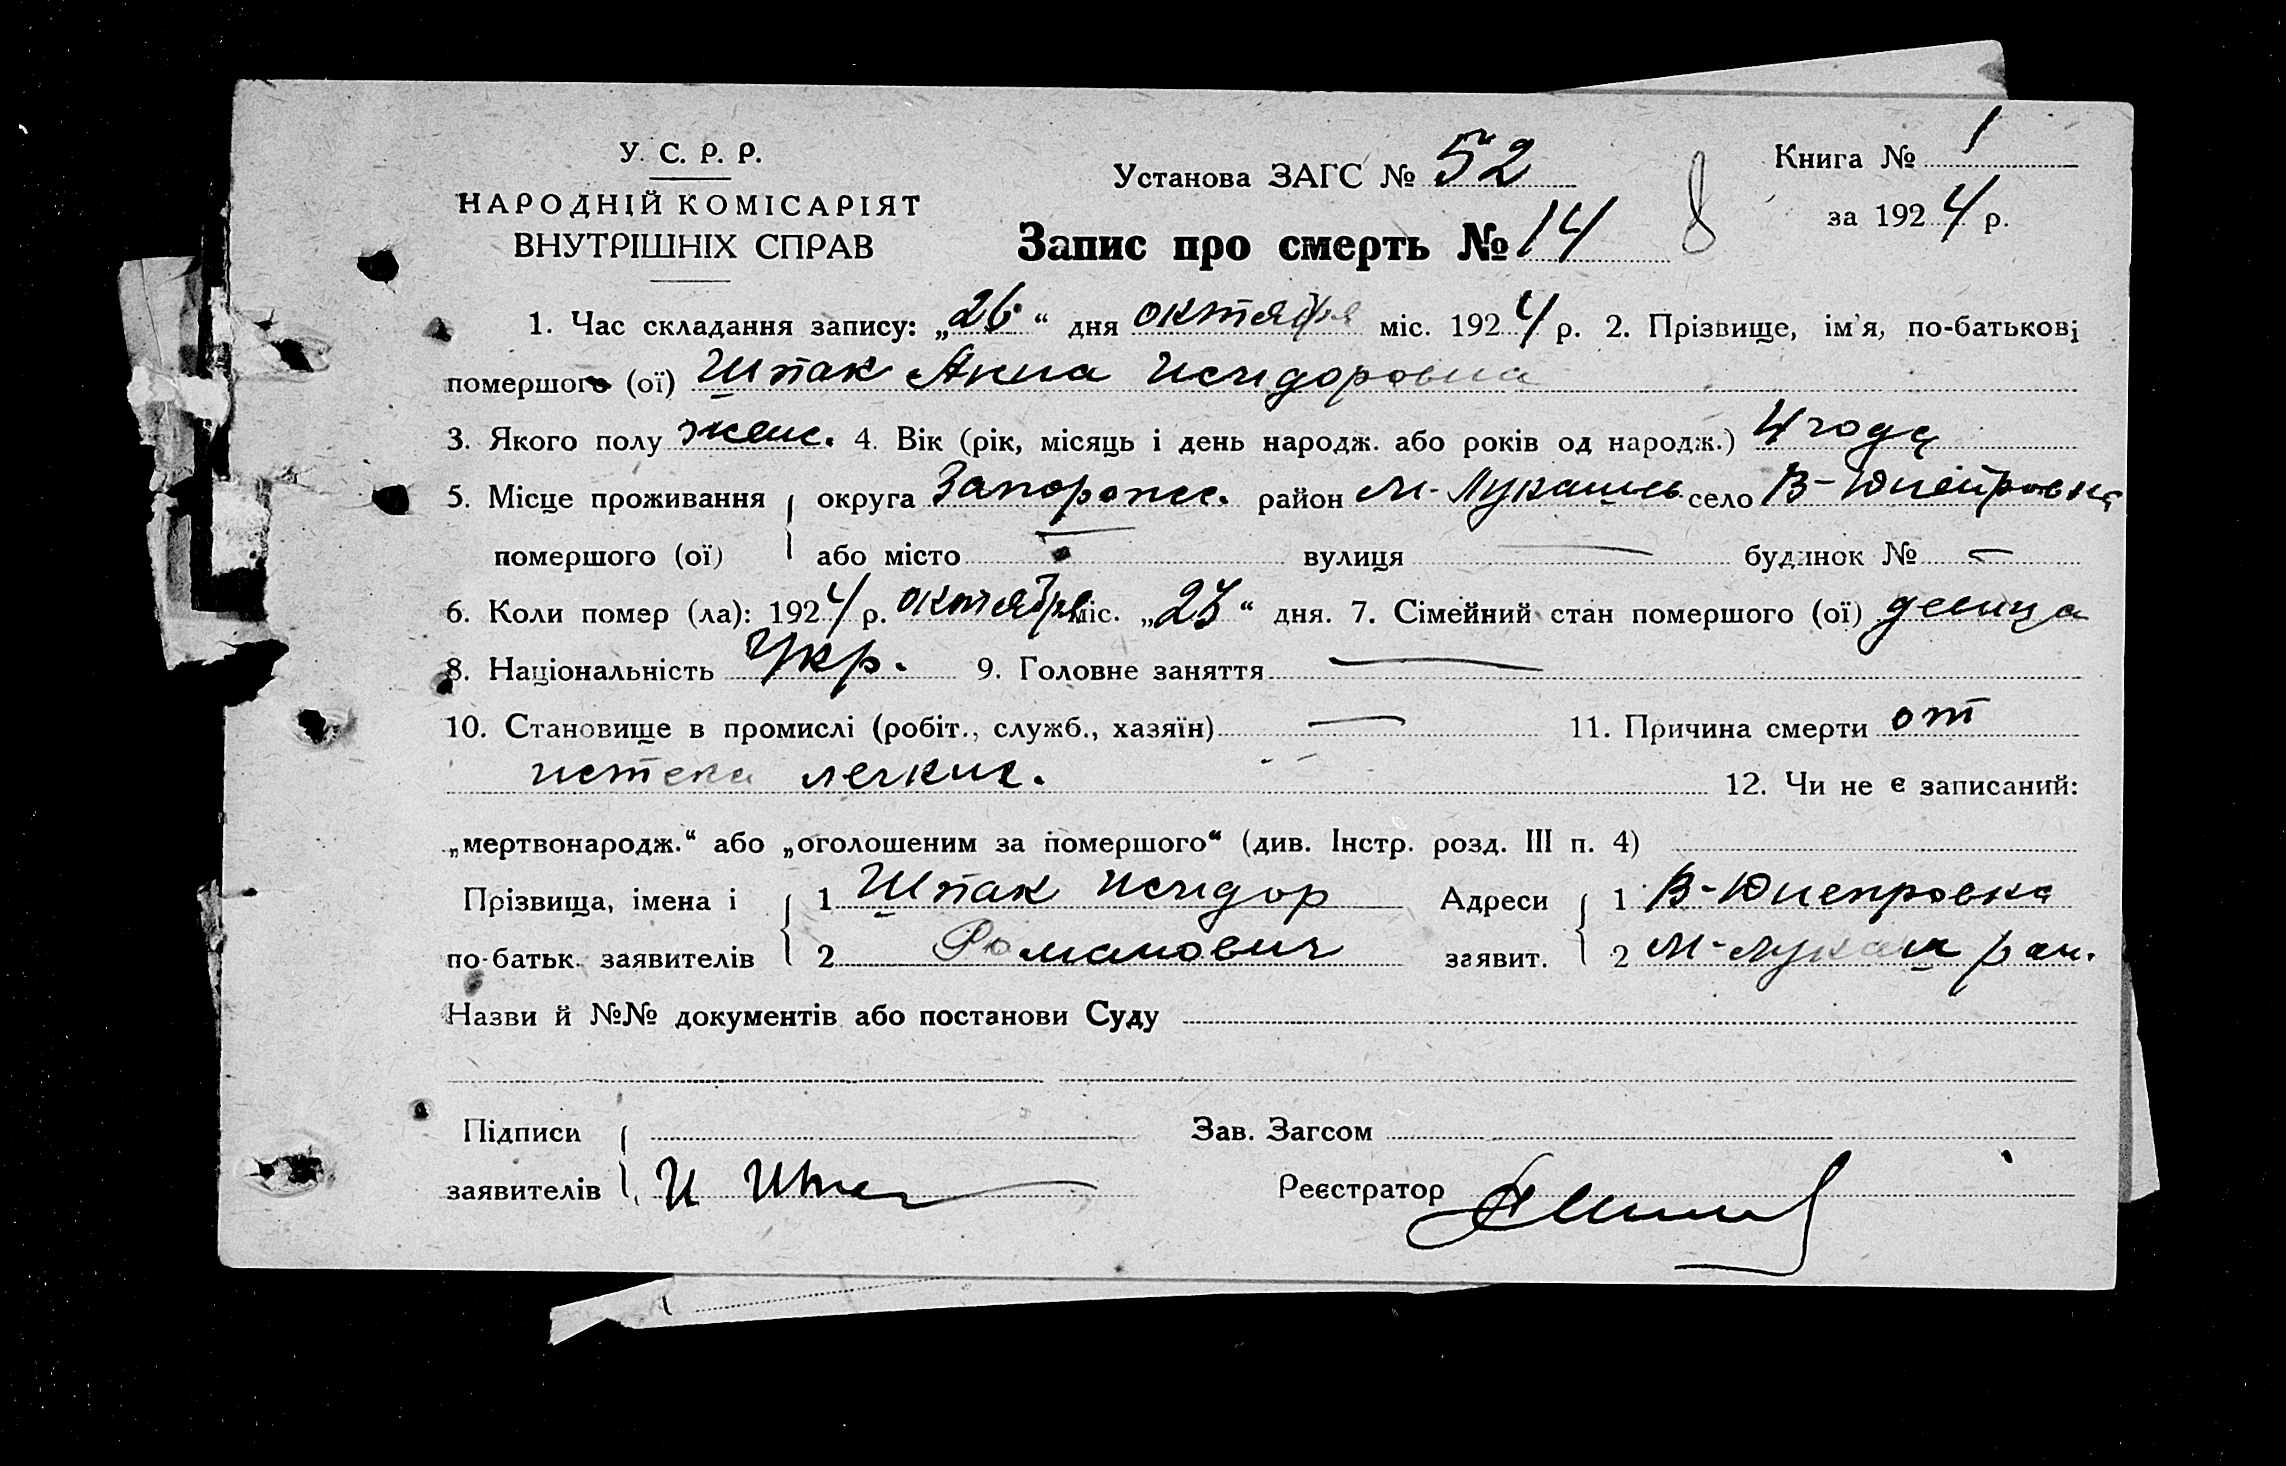 У. С. Р. Р.
НАРОДНІЙ КОМІСАРІЯТ
ВНУТРІШНІХ СПРАВ
Установа ЗАГС № 52
Запис про смерть № 14
8
Книга № 1
за 1924 р.
1. Час складання запису: „26“ дня октября міс. 1924 р. 2. Прізвище, ім'я, по-батькові
помершого (ої) Шпак Анна Исидоровна
3. Якого полу женс. 4. Вік (рік, місяць і день народж. або років од народж.) 4 года
5. Місце проживання округа Запорожс. район М-Лукашев. село В-Днепровка
помершого (ої) або місто — вулиця — будинок № —
6. Коли помер (ла): 1924 р. октября міс. „25“ дня. 7. Сімейний стан помершого (ої) девица
8. Національність Укр. 9. Головне заняття —
10. Становище в промислі (робіт., служб., хазяїн) — 11. Причина смерти от
легких. 12. Чи не є записаний:
„мертвонародж.“ або „оголошеним за помершого“ (див. Інстр. розд. III п. 4)
Прізвища, імена і 1 Шпак Исидор Адреси 1 В-Днепровка
по-батьк. заявителів 2 Романович заявит. 2 М-Лукаш рай.
Назви й №№ документів або постанови Суду
Підписи Зав. Загсом
заявителів И Шпак Реєстратор